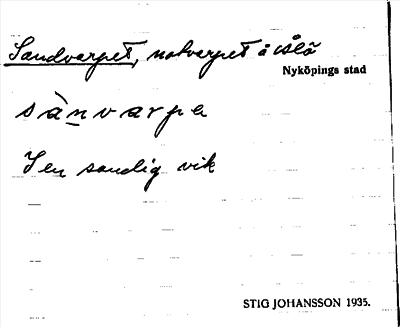 Sandvarpet, notvarpet å Islö
Nyköpings stad
sànvarpe
I en sandig vik
STIG JOHANSSON 1935.